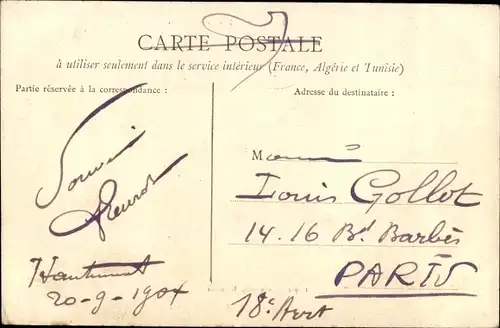 CARTE POSTALE
à utiliser seulement dans le service intérieur (France, Algérie et Tunisie)
Partie réservée à la correspondance :
Adresse du destinataire :
Souvenir
20-9-1904
M
Louis Gollot
14.16 Bd. Barbès
PARIS
18e Arrt